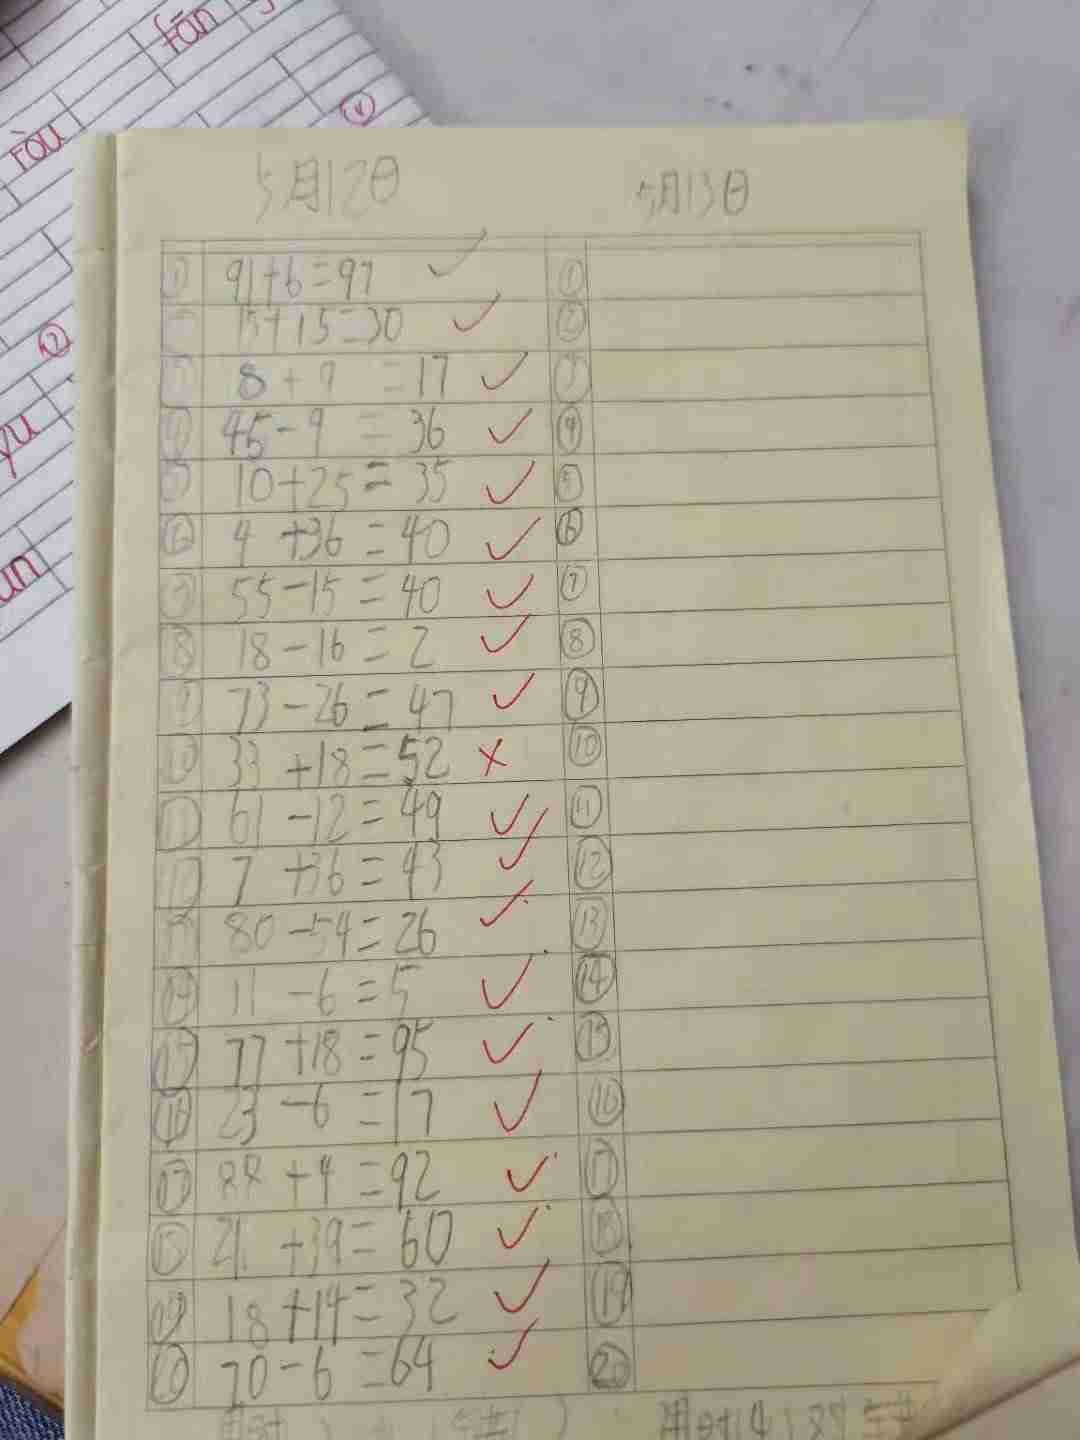 fān
ròu
④
②
yu
un
5月12日 5月13日
① 91+6=97 ✓ ①
15+15=30 ✓ ②
③ 8+9=17 ✓ ③
④ 45-9=36 ✓ ④
⑤ 10+25=35 ✓ ⑤
⑥ 4+36=40 ✓ ⑥
⑦ 55-15=40 ✓ ⑦
⑧ 18-16=2 ✓ ⑧
⑨ 73-26=47 ✓ ⑨
⑩ 33+18=52 × ⑩
⑪ 61-12=49 ✓ ⑪
⑫ 7+36=43 ✓ ⑫
⑬ 80-54=26 ✓ ⑬
⑭ 11-6=5 ✓ ⑭
⑮ 77+18=95 ✓ ⑮
⑯ 23-6=17 ✓ ⑯
⑰ 88+4=92 ✓ ⑰
⑱ 21+39=60 ✓ ⑱
⑲ 18+14=32 ✓ ⑲
⑳ 70-6=64 ✓ ⑳
用时 用时